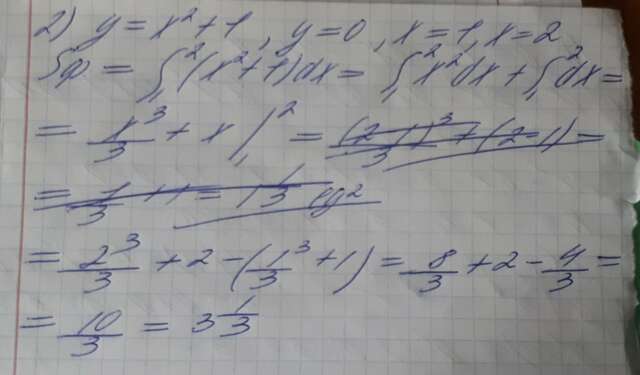 2) y = x² + 1, y = 0, x = 1, x = 2
Sф = ∫₁² (x² + 1)dx = ∫₁² x²dx + ∫₁² dx =
= x³/3 + x |₁² = (2-1)³/3 + (2-1) =
= 1/3 + 1 = 1 1/3 eg²
= 2³/3 + 2 - (1³/3 + 1) = 8/3 + 2 - 4/3 =
= 10/3 = 3 1/3